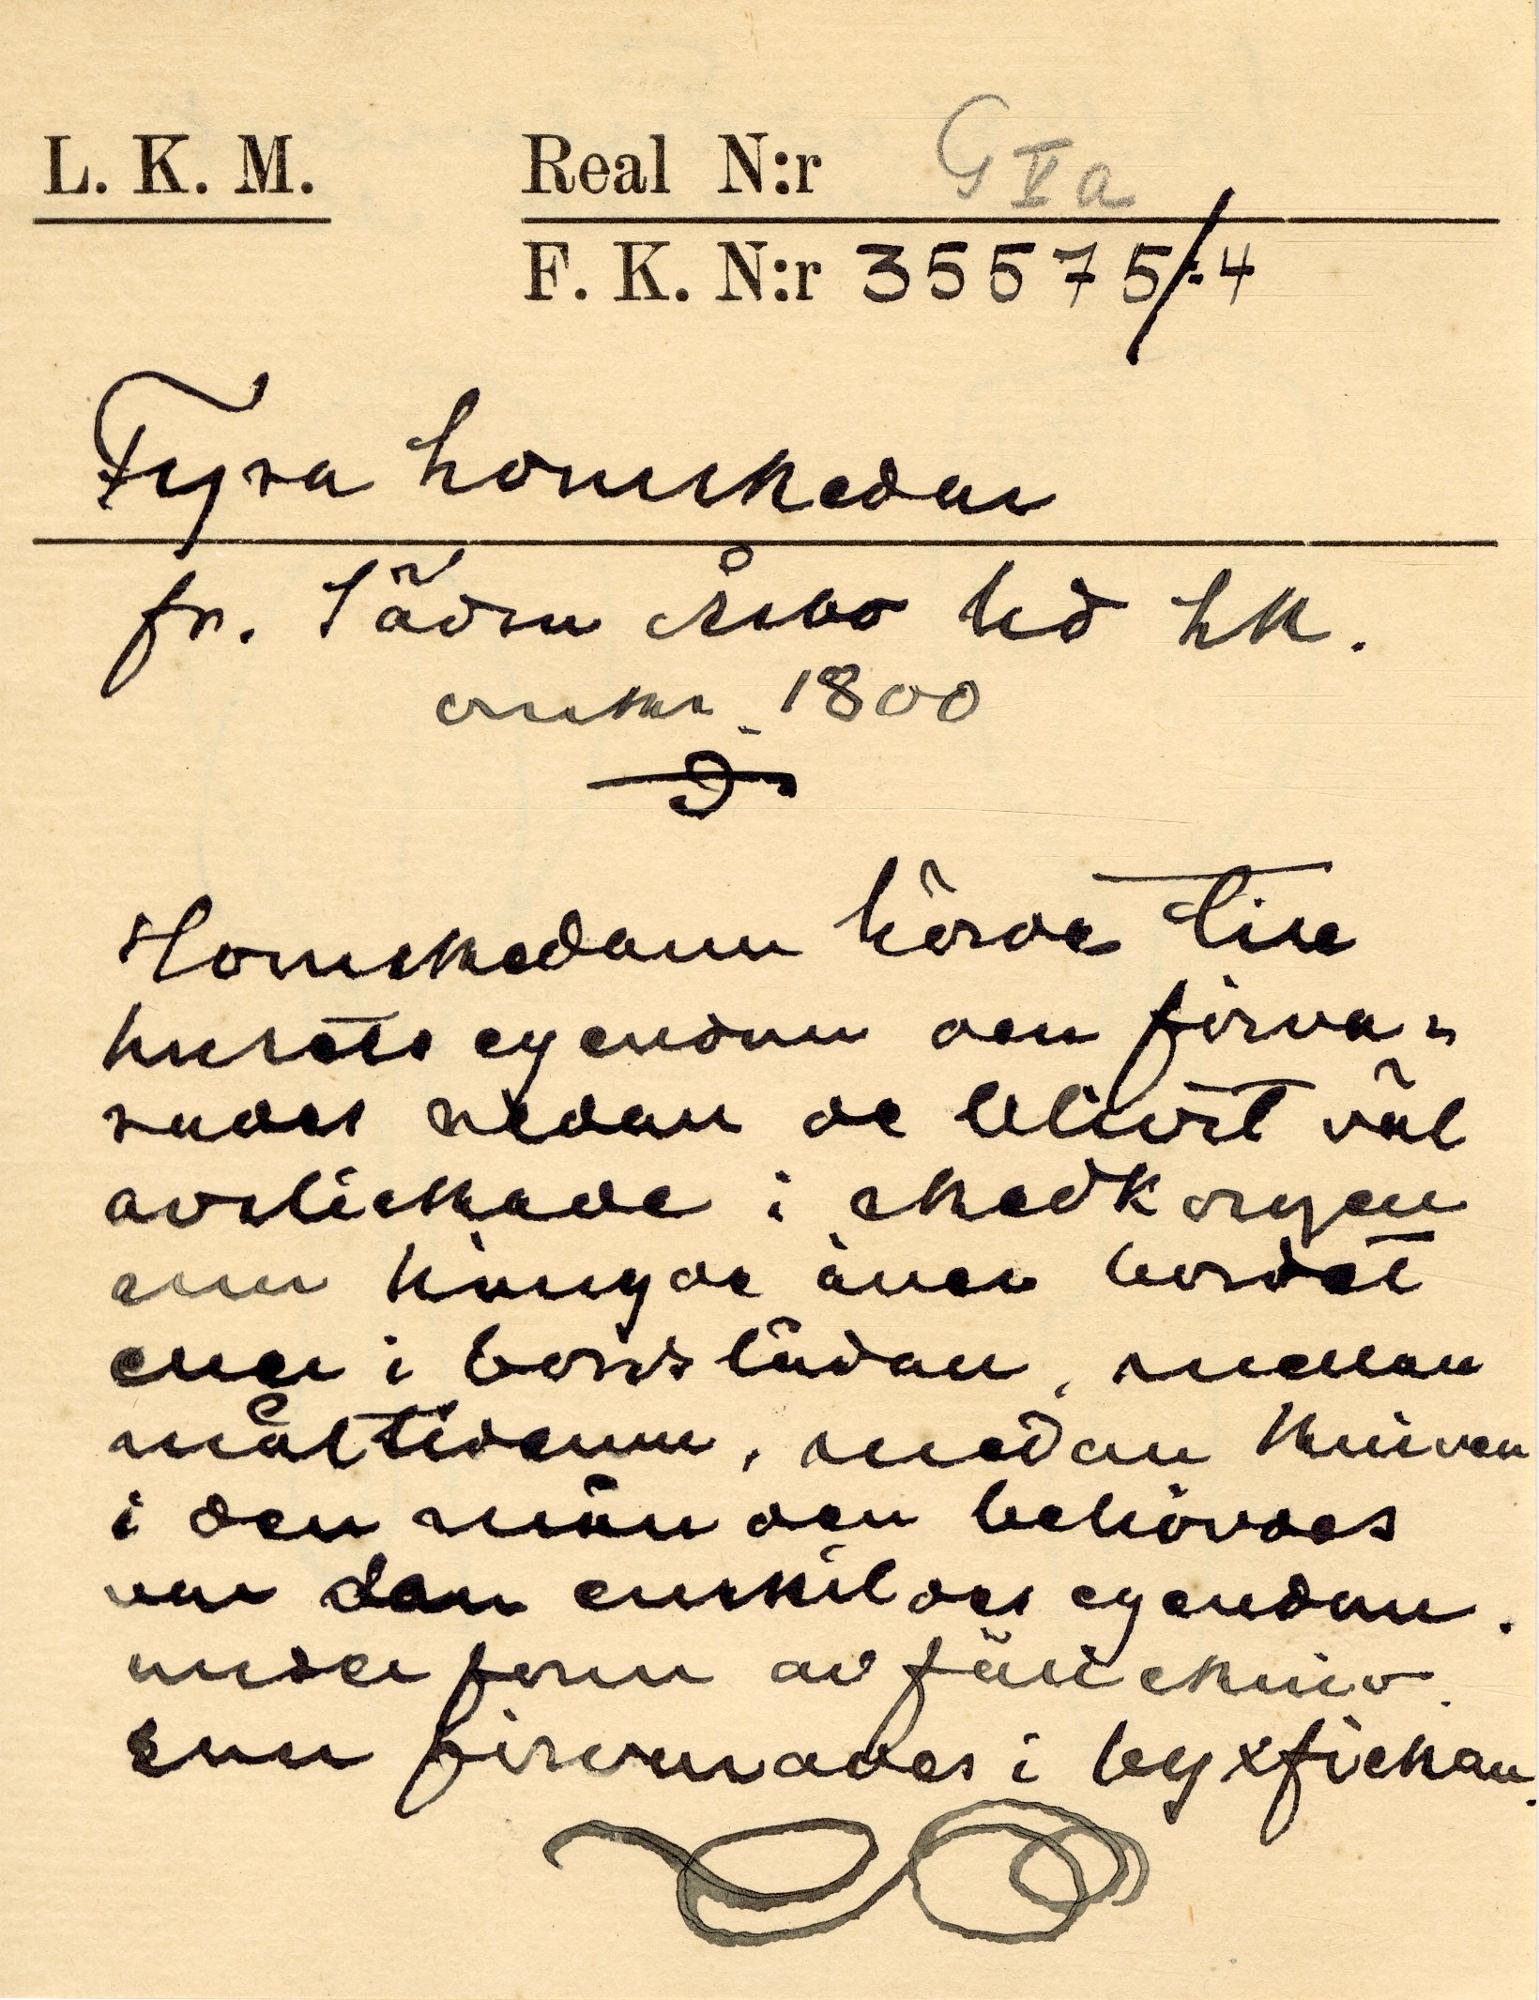 L. K. M.
Real N:r G V a
F. K. N:r 35575/:4
Fyra hornskedar
fr. Södra Åsbo hd LK.
omkr. 1800
Hornskedarna hörde till
husets egendom och förva-
rades sedan de blivit väl
avslickade i skedkorgen
som hängde över bordet
eller i bordslådan, mellan
måltiderna, medan kniven
i den mån den behövdes
var den enskildes egendom.
under form av fällekniv
som förvarades i byxfickan.